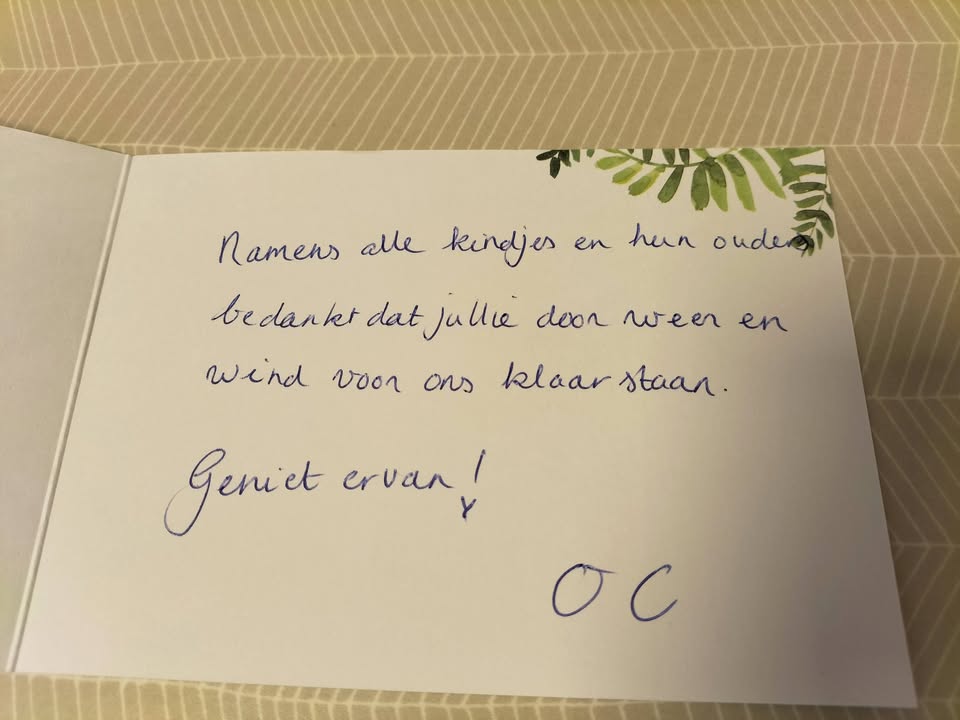 Namens alle kindjes en hun ouders
bedankt dat jullie door weer en
wind voor ons klaar staan.
Geniet ervan!
OC